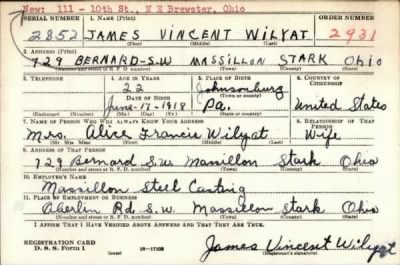 New: 111 - 10th St., N E Brewster, Ohio
SERIAL NUMBER 1. NAME (Print) ORDER NUMBER
2852 JAMES VINCENT WILYAT 2931
(First) (Middle) (Last)
2. ADDRESS (Print)
729 BERNARD-S.W MASSILLON STARK Ohio
(Number and street or R. F. D. number) (Town) (County) (State)
3. TELEPHONE 4. AGE IN YEARS 5. PLACE OF BIRTH 6. COUNTRY OF CITIZENSHIP
22 Johnsonburg
DATE OF BIRTH (Town or county)
June-17-1918 Pa. United States
(Exchange) (Number) (Mo.) (Day) (Yr.) (State or country)
7. NAME OF PERSON WHO WILL ALWAYS KNOW YOUR ADDRESS 8. RELATIONSHIP OF THAT PERSON
Mrs. Alice Francis Wilyat Wife
(Mr. Mrs. Miss) (First) (Middle) (Last)
9. ADDRESS OF THAT PERSON
729 Bernard S.W. Massillon Stark Ohio
(Number and street or R. F. D. number) (Town) (County) (State)
10. EMPLOYER'S NAME
Massillon Steel Casting
11. PLACE OF EMPLOYMENT OR BUSINESS
Oberlin Rd S.W. Massillon Stark Ohio
(Number and street or R. F. D. number) (Town) (County) (State)
I AFFIRM THAT I HAVE VERIFIED ABOVE ANSWERS AND THAT THEY ARE TRUE.
REGISTRATION CARD
D. S. S. Form 1 16-17105 James Vincent Wilyat
(Registrant's signature)